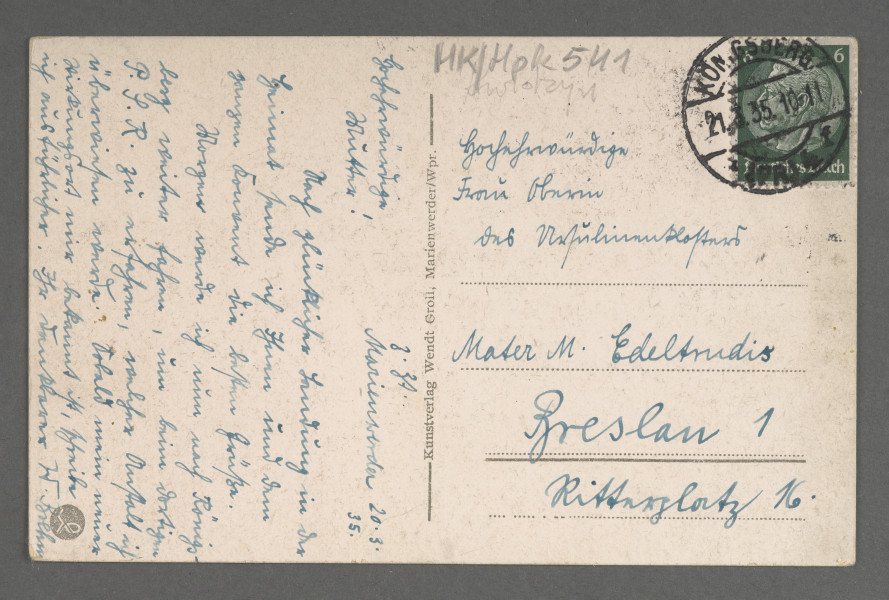 HK/Hpk 541
KÖNIGSBERG
21.3.35.10-11
6
Deutsches Reich
Hochehrwürdige
Frau Oberin
des Ursulinenklosters
Mater M. Edeltrudis
Breslau 1
Ritterplatz 16.
Kunstverlag Wendt Groll, Marienwerder/Wpr.
z. Zt.
Marienwerder 20.3.
35.
Hochehrwürdige
Mutter!
Nach glücklicher Landung in der
Heimat sende ich Ihnen und dem
ganzen Konvent die besten Grüße.
Morgen werde ich nun nach Königs-
berg weiter fahren, um beim dortigen
P.S.K. zu erfahren, welcher Anstalt ich
überwiesen werde. Sobald mein neuer
Wirkungsort mir bekannt ist, schreibe
ich ausführlicher. Ihr dankbarer